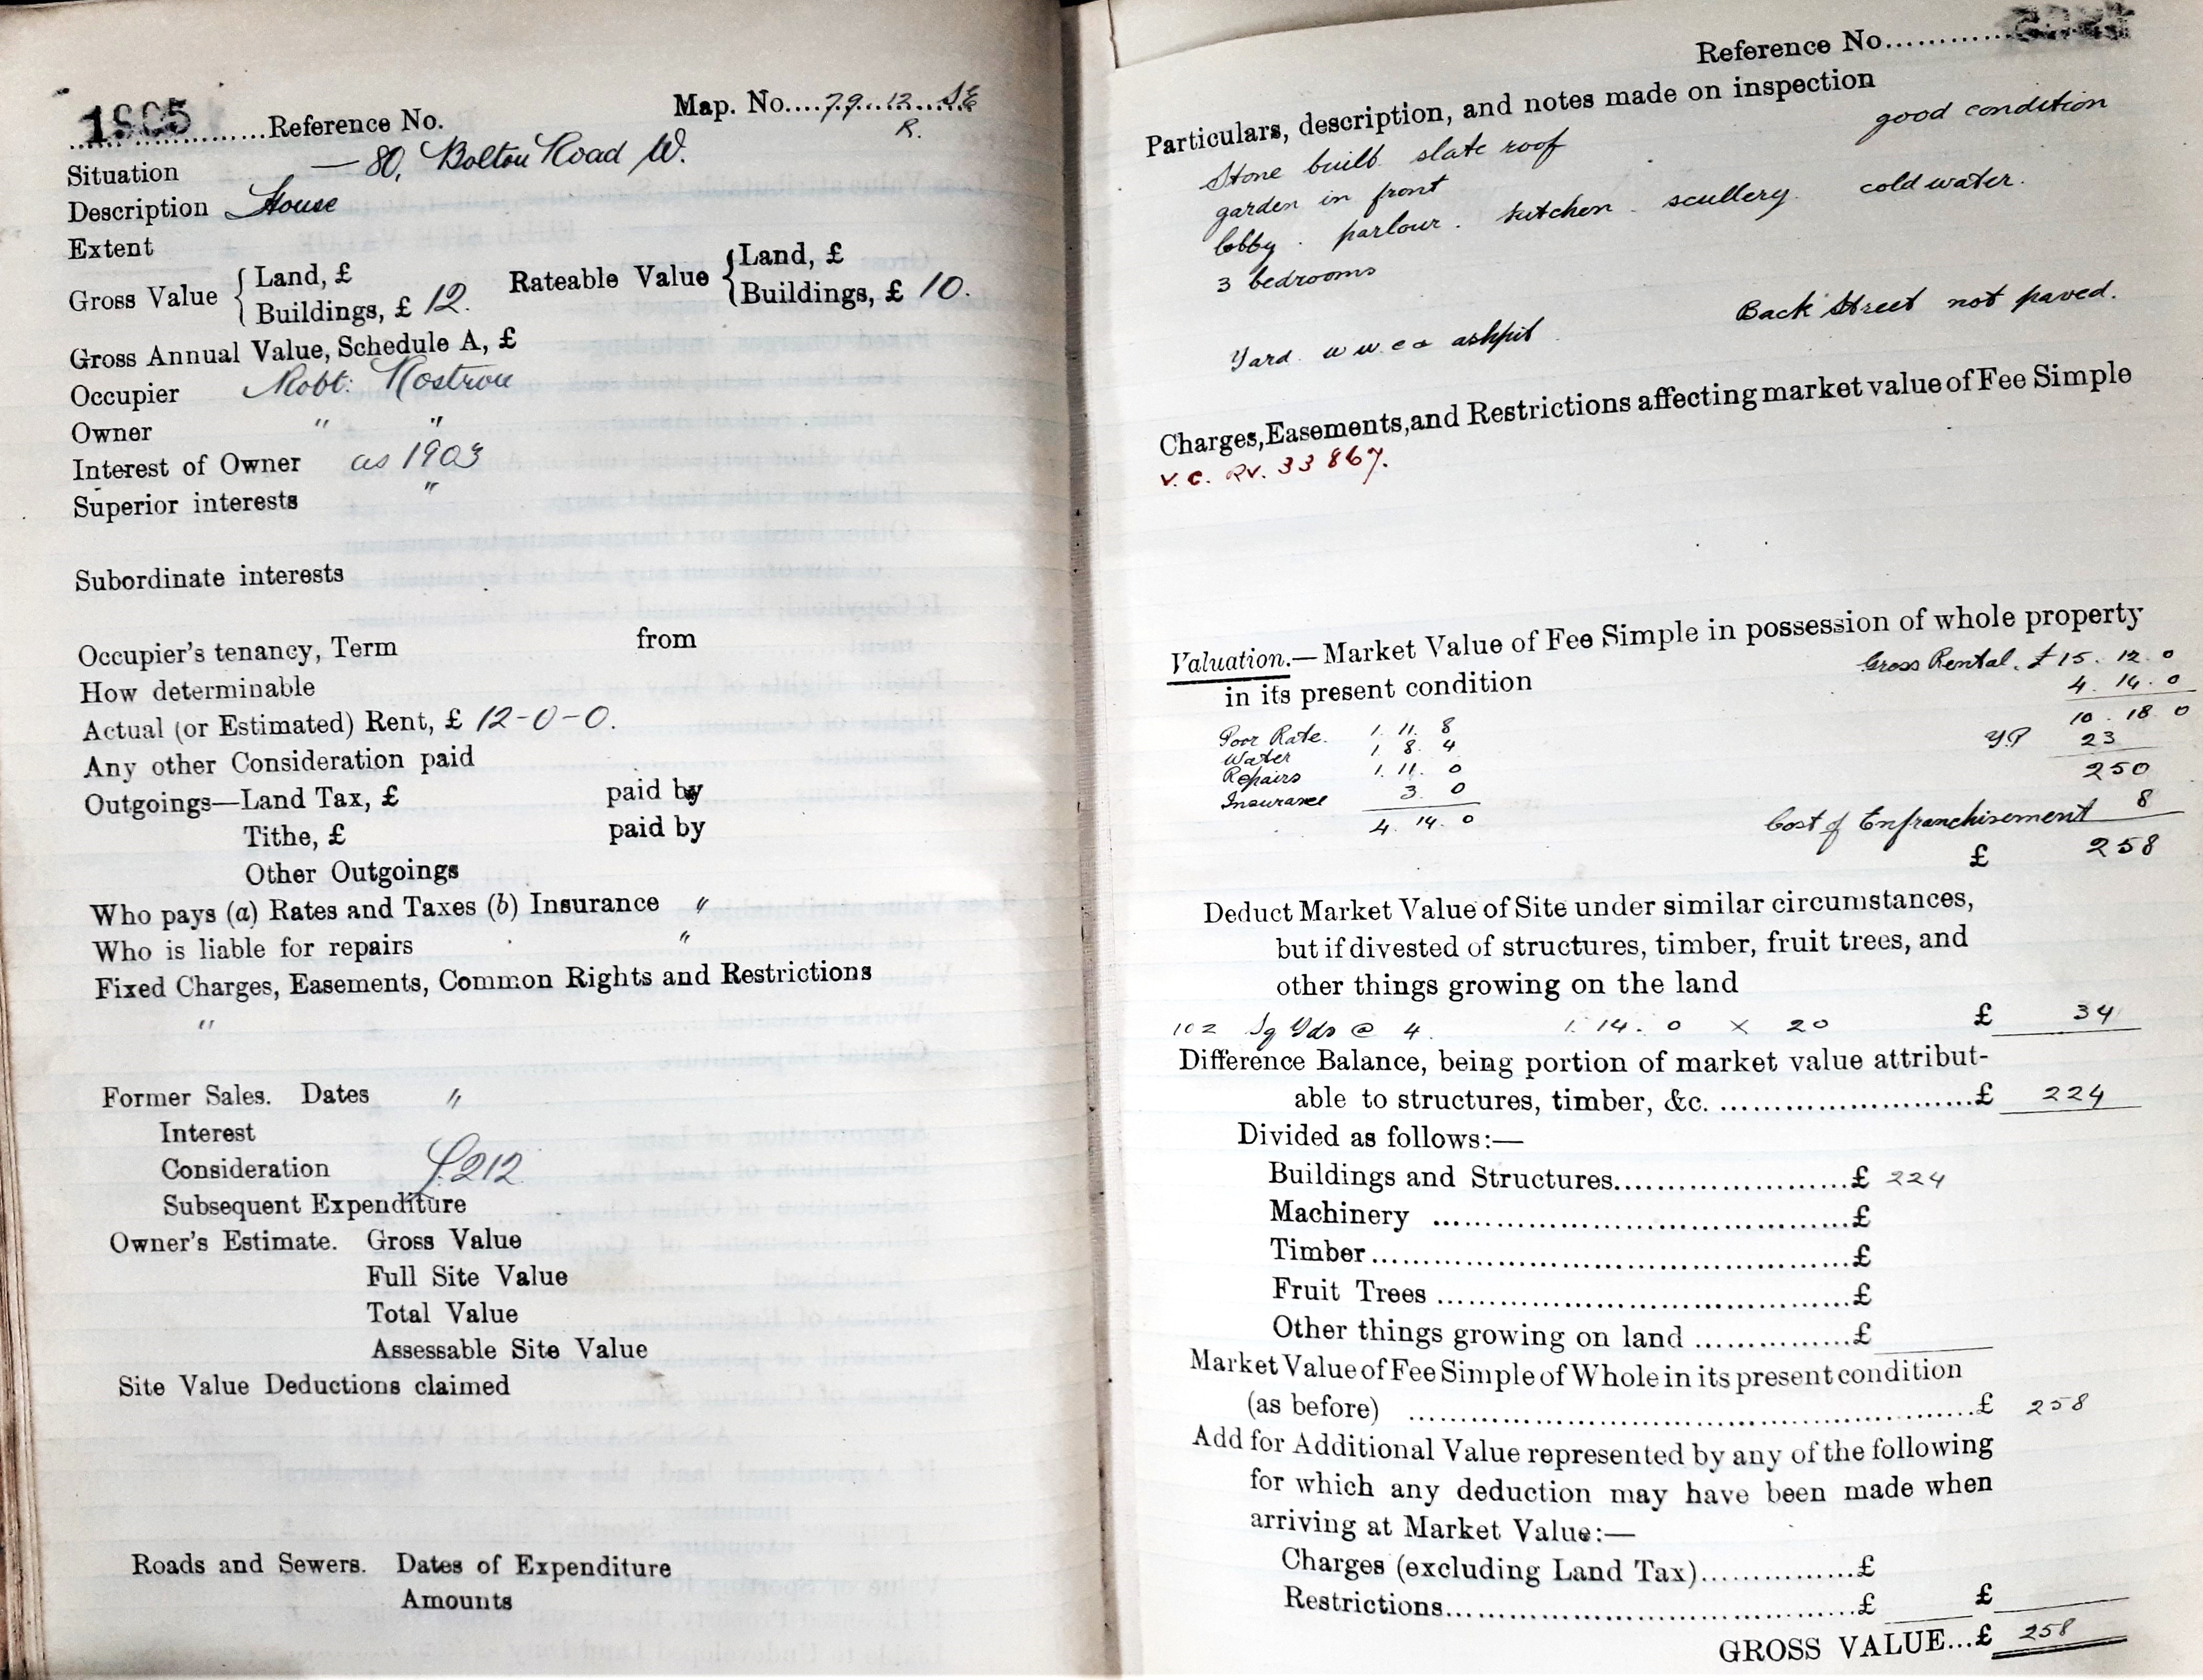 1905 .............Reference No.
Map. No....79...12...SE
R.
Situation — 80, Bolton Road W.
Description House
Extent
Gross Value { Land, £
Buildings, £ 12.
Rateable Value { Land, £
Buildings, £ 10.
Gross Annual Value, Schedule A, £
Occupier Robt: Rostron
Owner " "
Interest of Owner as 1903
Superior interests "
Subordinate interests
Occupier's tenancy, Term from
How determinable
Actual (or Estimated) Rent, £ 12-0-0.
Any other Consideration paid
Outgoings—Land Tax, £ paid by
Tithe, £ paid by
Other Outgoings
Who pays (a) Rates and Taxes (b) Insurance "
Who is liable for repairs "
Fixed Charges, Easements, Common Rights and Restrictions
"
Former Sales. Dates "
Interest
Consideration £212
Subsequent Expenditure
Owner's Estimate. Gross Value
Full Site Value
Total Value
Assessable Site Value
Site Value Deductions claimed
Roads and Sewers. Dates of Expenditure
Amounts
Reference No..............
Particulars, description, and notes made on inspection
good condition
Stone built slate roof
garden in front
lobby . parlour . kitchen . scullery . cold water.
3 bedrooms
Back Street not paved.
Yard w w c & ashpit
Charges, Easements, and Restrictions affecting market value of Fee Simple
V. C. RV. 33867.
Valuation.—Market Value of Fee Simple in possession of whole property
in its present condition
Gross Rental. £ 15. 12. 0
4. 14. 0
10. 18 0
Y.P 23
250
Cost of Enfranchisement 8
£ 258
Poor Rate. 1. 11. 8
Water 1. 8. 4
Repairs 1. 11. 0
Insurance 3. 0
4. 14. 0
Deduct Market Value of Site under similar circumstances,
but if divested of structures, timber, fruit trees, and
other things growing on the land
102 Sq Yds @ 4. 1. 14. 0 x 20 £ 34
Difference Balance, being portion of market value attribut-
able to structures, timber, &c. ..........................£ 224
Divided as follows:—
Buildings and Structures.......................£ 224
Machinery .........................................£
Timber...............................................£
Fruit Trees .........................................£
Other things growing on land ...............£
Market Value of Fee Simple of Whole in its present condition
(as before) .......................................................£ 258
Add for Additional Value represented by any of the following
for which any deduction may have been made when
arriving at Market Value:—
Charges (excluding Land Tax)...............£
Restrictions.........................................£ £
GROSS VALUE...£ 258